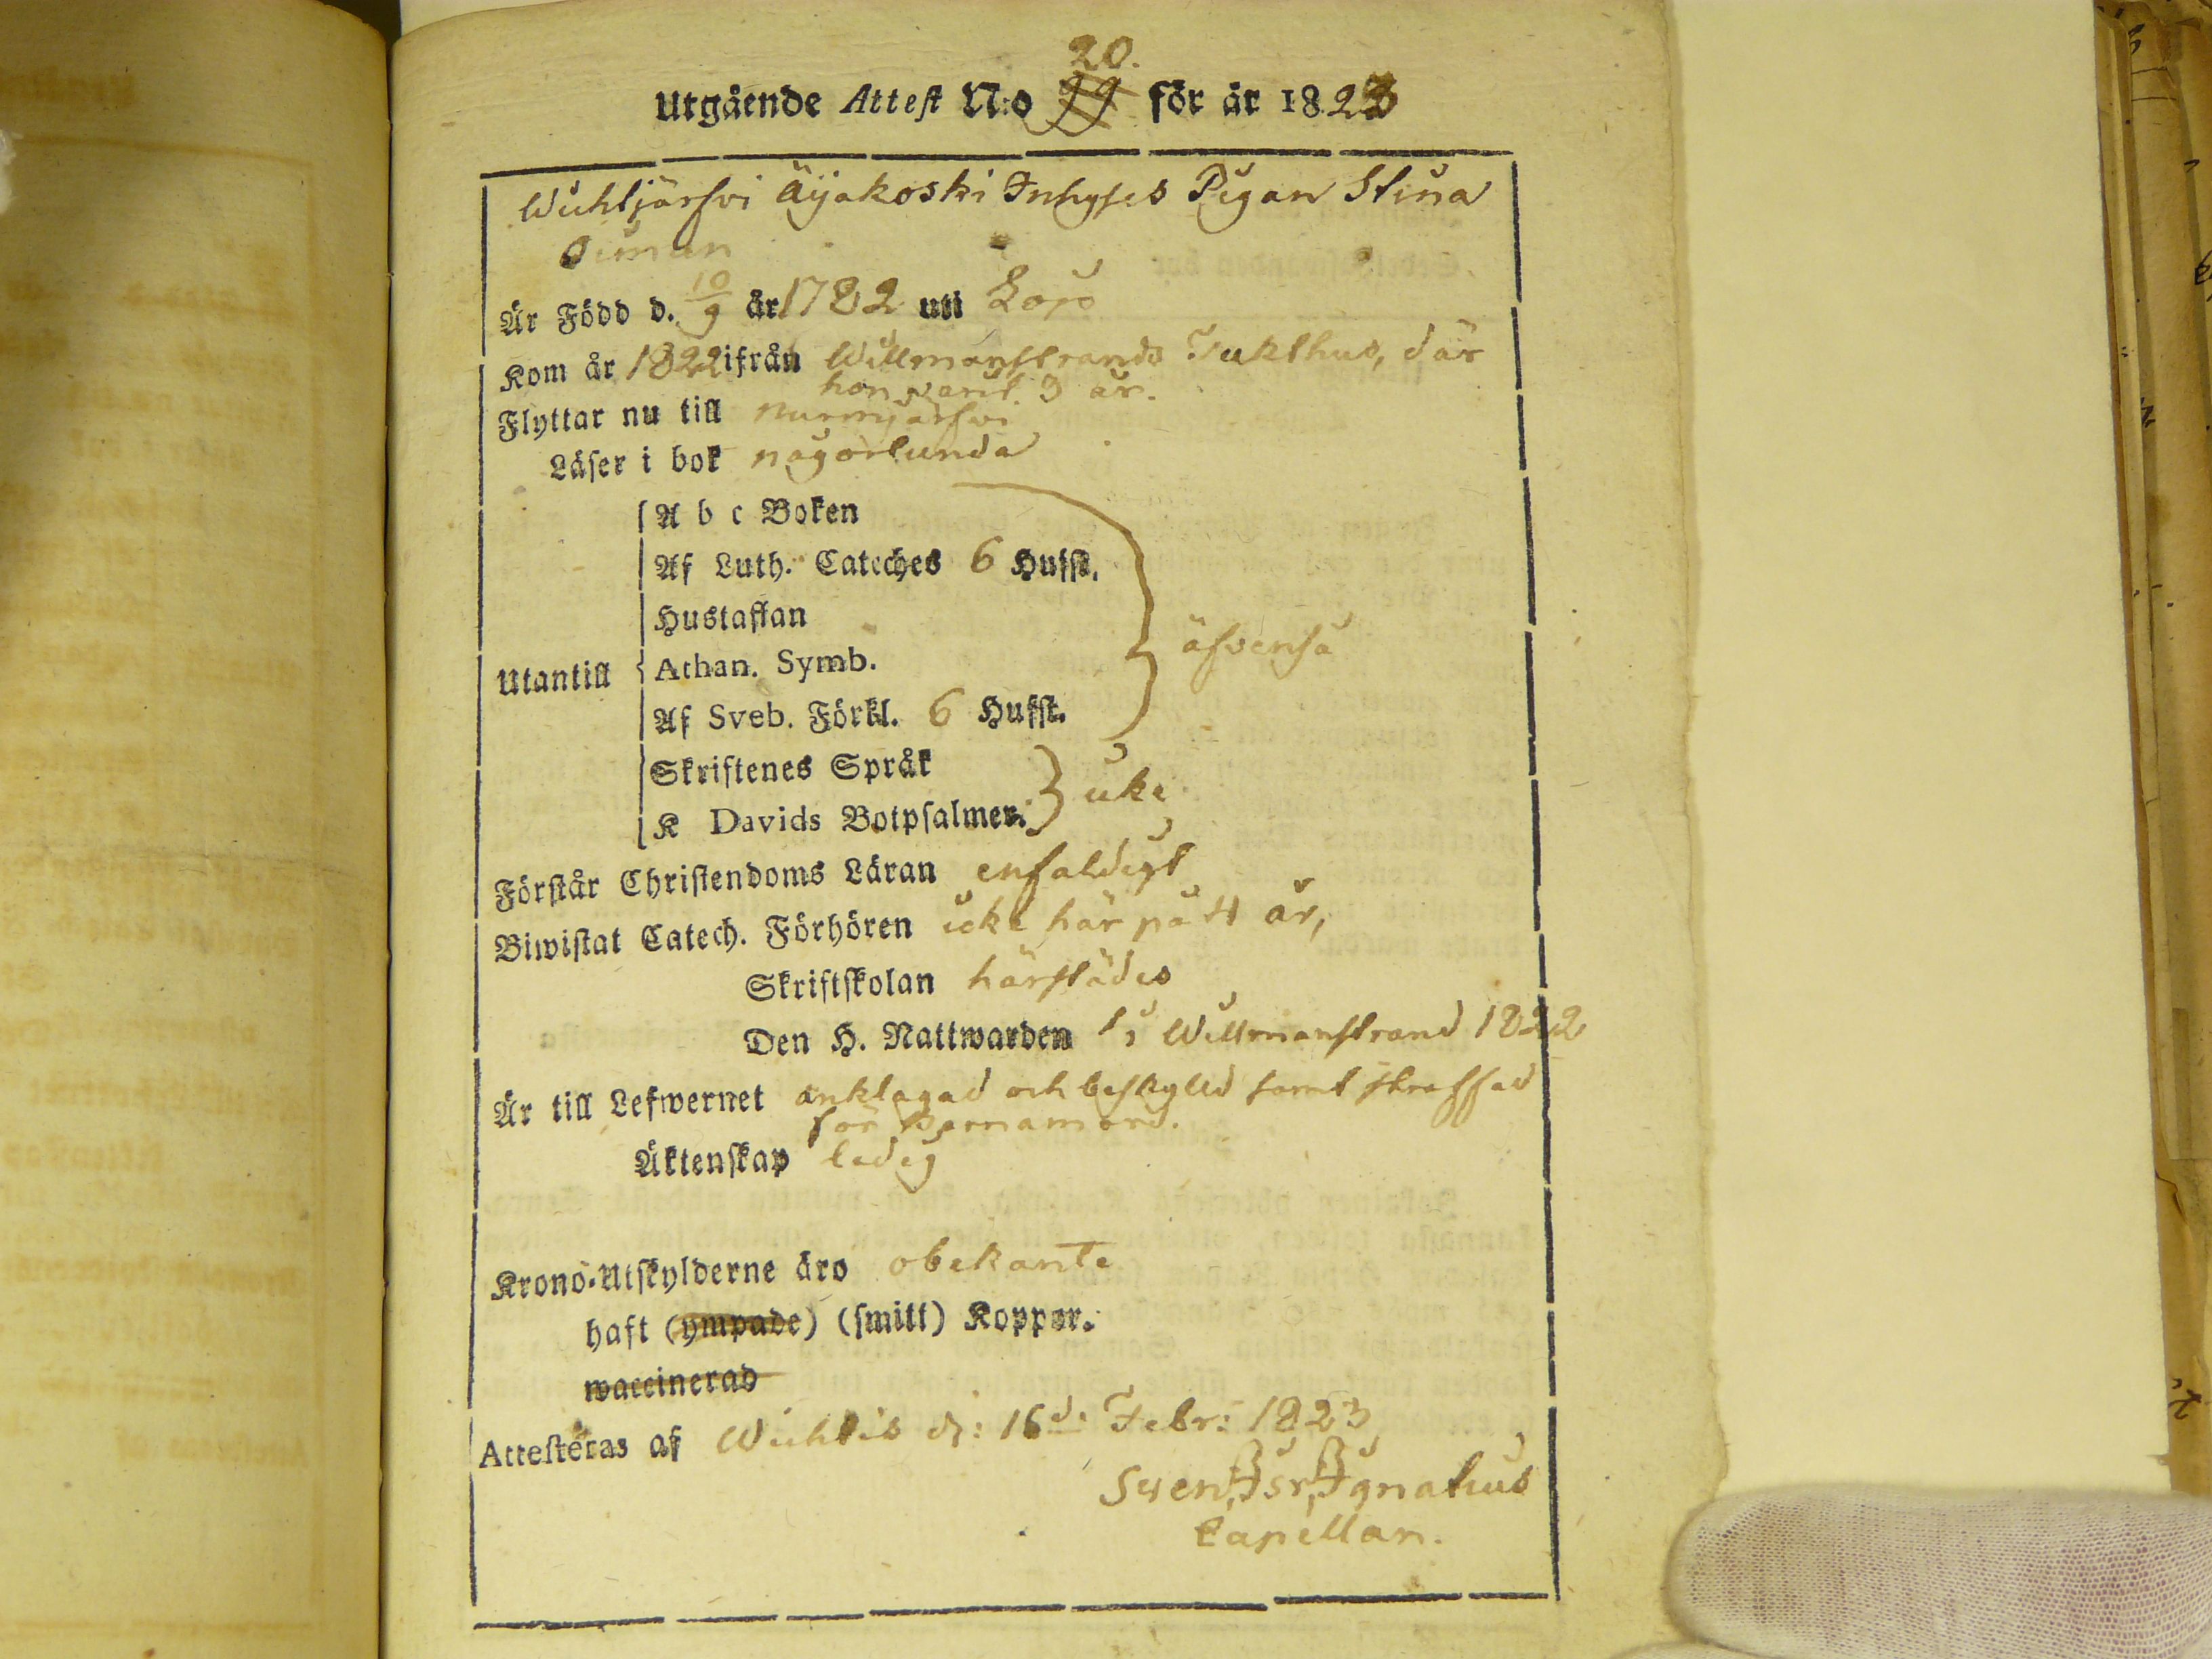 20.
Utgående Attest N:o för år 1823
Wichtjärfvi Äÿakoski Inhyses Pigan Stina
Siman
Är Född d. 10/9 år 1782 uti Lojo
Kom år 1822 ifrån Willmanstrands Tukthus, där
hon varit 3 år.
Flyttar nu till Nurmijärfvi
Läser i bok någorlunda
A b c Boken
Af Luth. Cateches 6 Hufst.
Hustaflan
Utantill Athan. Symb. äfvenså
Af Sveb. Förkl. 6 Hufst.
Skriftenes Språk
K Davids Botpsalmer. icke
Förstår Christendoms Läran enfaldigt
Biwistat Catech. Förhören icke här på 4 år,
Skriftskolan härstädes
Den H. Nattwarden i Willmanstrand 1822
Är till Lefwernet anklagad och beskylld samt straffad
för Barnamord.
Äktenskap ledig
Krono-Utskylderne äro obekante
haft (ympade) (smitt) Koppor.
waccinerad
Attesteras af Wichtis d: 16d: Febr: 1823
Sven Isr. Ignatius
Capellan.